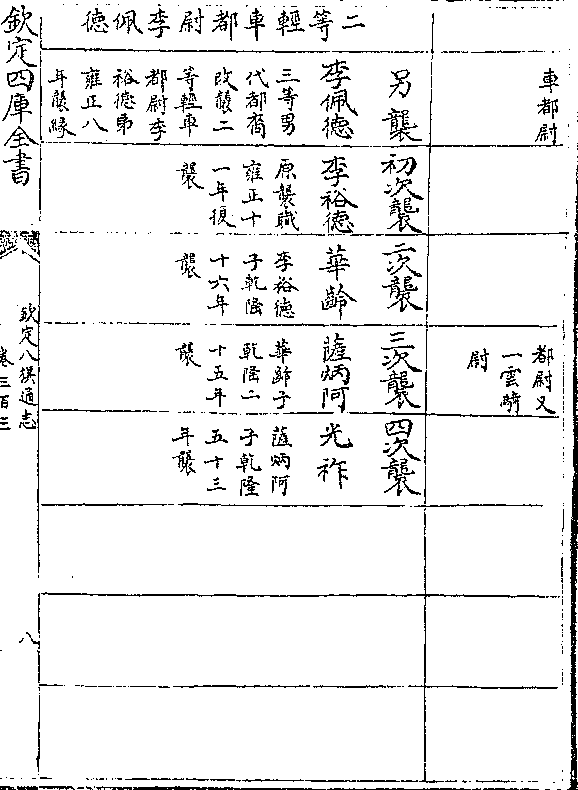 車都尉
都尉又
一雲騎
尉
二等輕車都尉李佩德
另襲
李佩德
三等男
代都裔
改襲二
等輕車
都尉李
裕德弟
雍正八
年襲緣
初次襲
李裕德
原襲職
雍正十
一年復
襲
二次襲
華齡
李裕德
子乾隆
十六年
襲
三次襲
薩炳阿
華齡子
乾隆二
十五年
襲
四次襲
光祚
薩炳阿
子乾隆
五十三
年襲
欽定四庫全書
欽定八旗通志
卷三百三
八